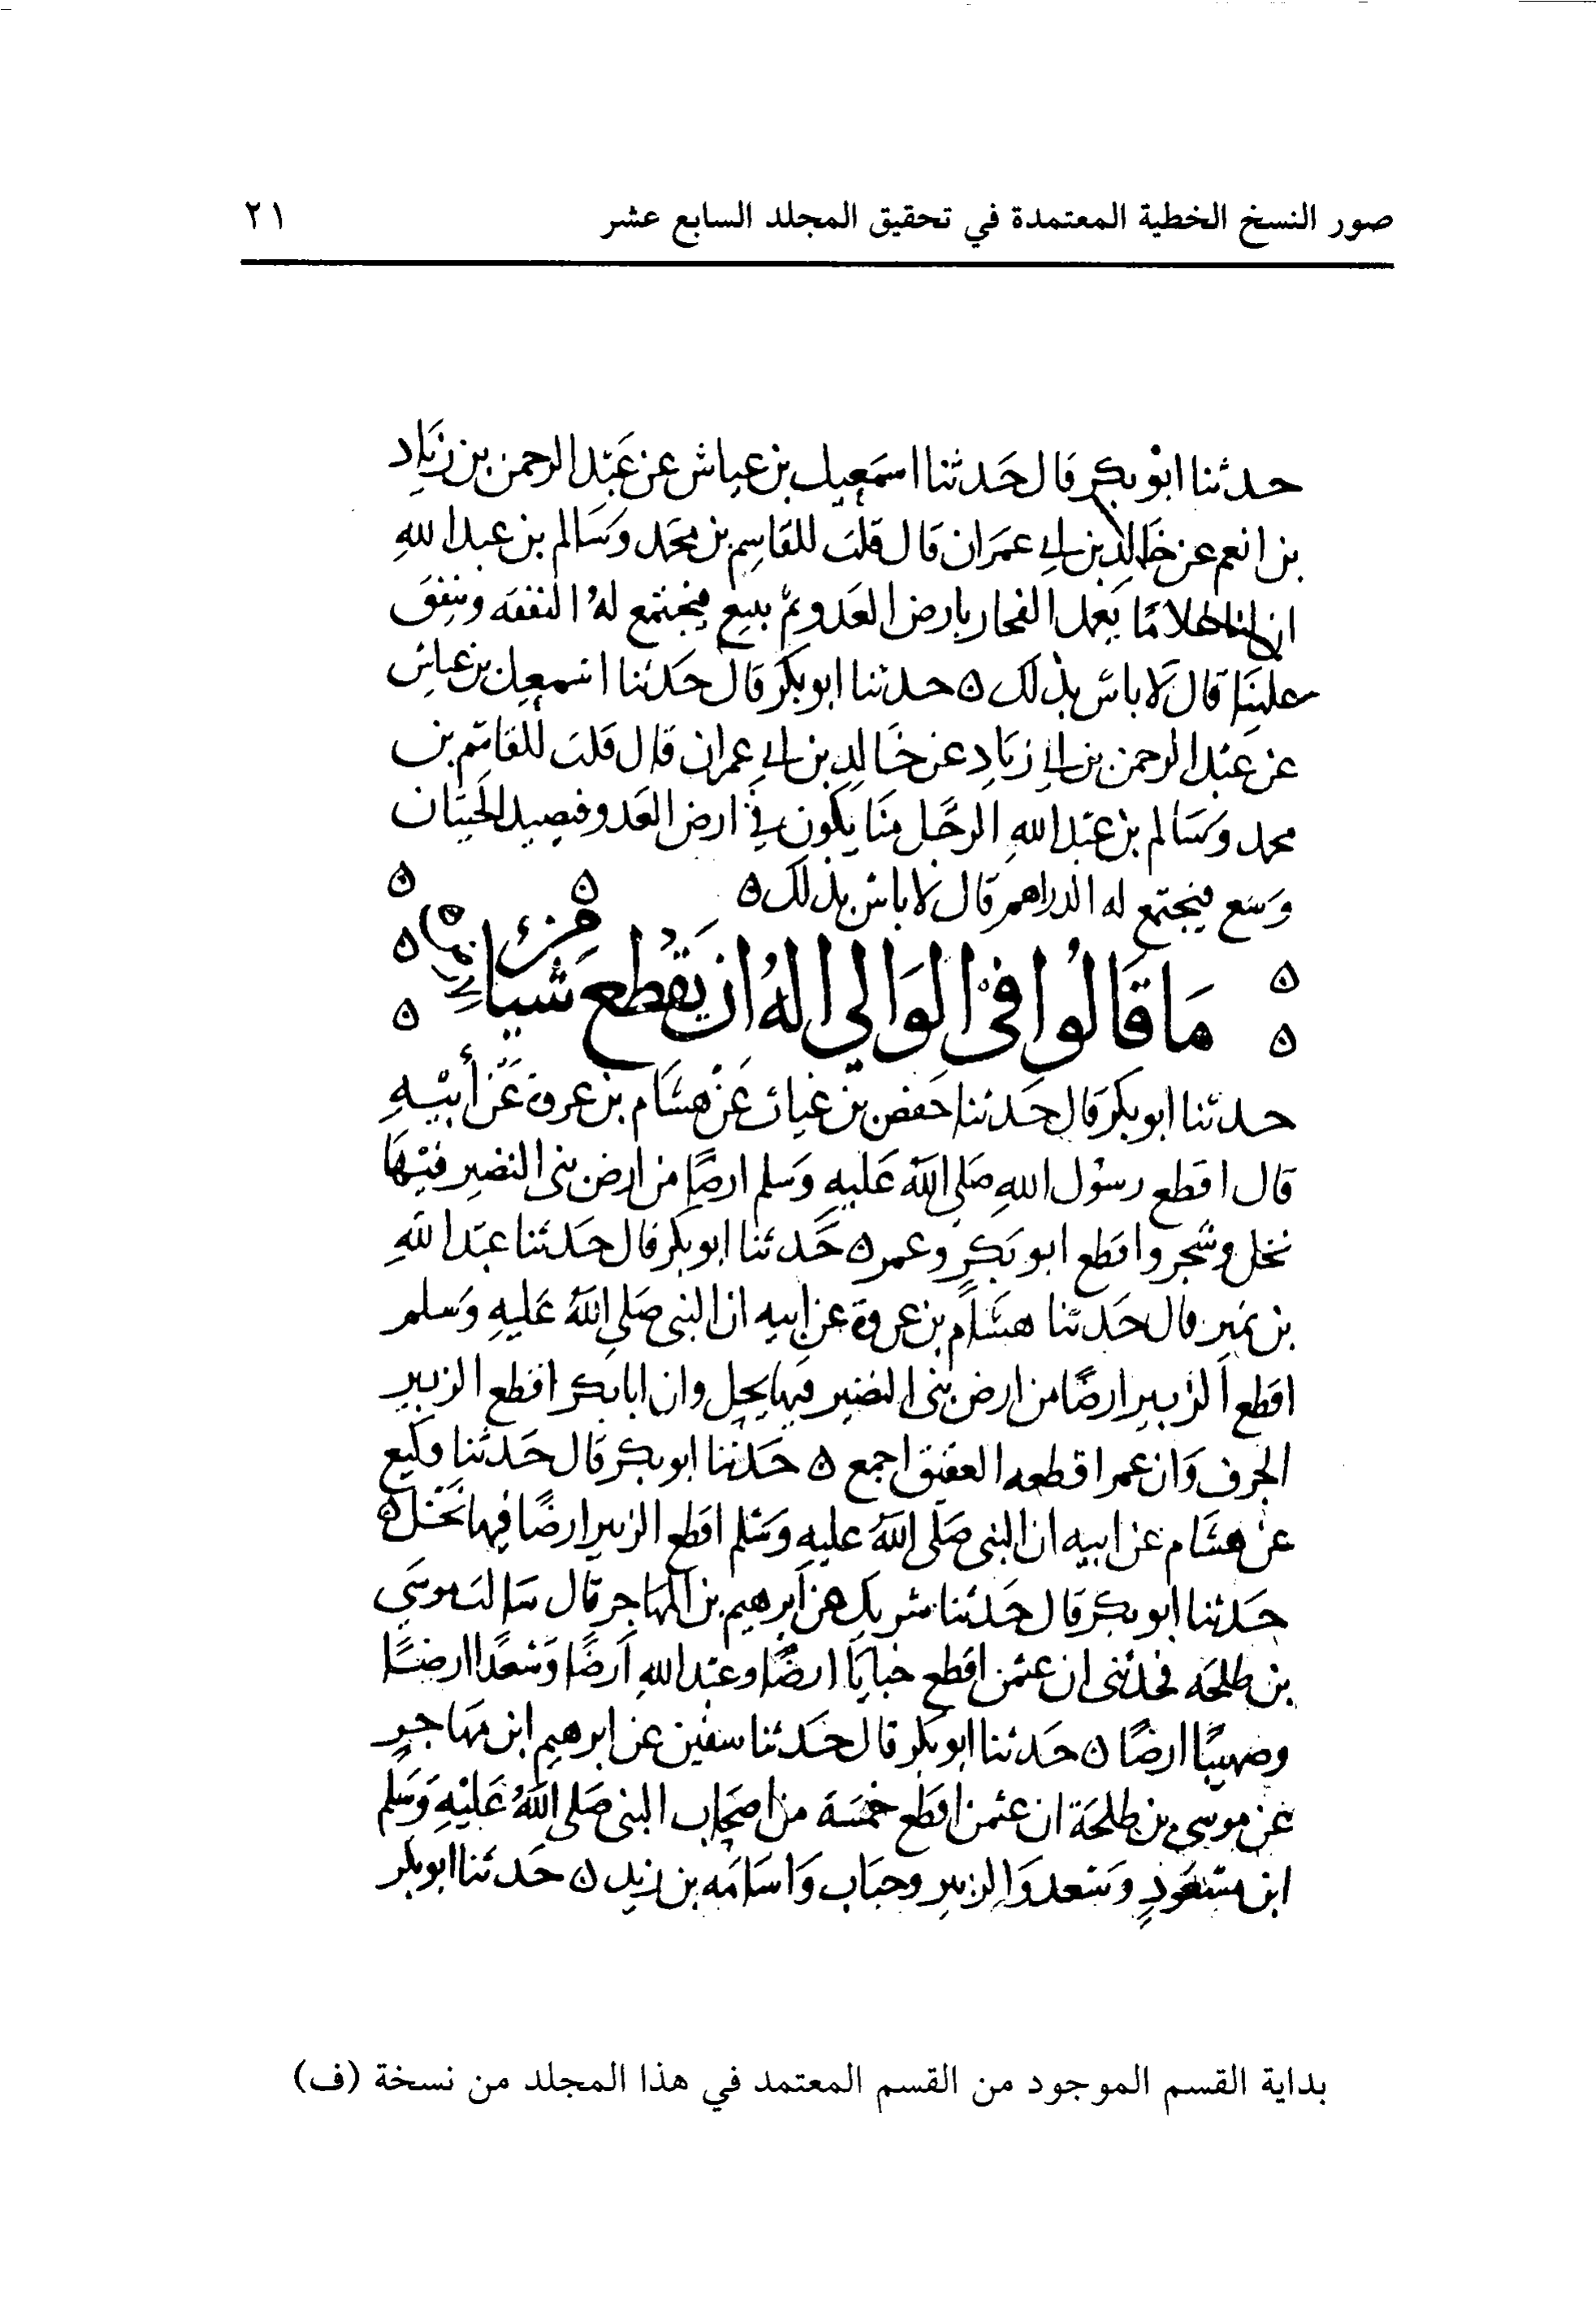 صور النسخ الخطية المعتمدة في تحقيق المجلد السابع عشر ٢١
حدثنا ابو بكر قال حَدثنا اسمَعيل بن عياش عن عَبد الرحمن بن زيَاد
بن انعم عن خَالدِ بن ابي عمرَان قال قلتَ للقاسِم بن محمد وسَالم بن عبد اللهِ
ان غلامًا يَعمل الفخار بارض العَدو ثم يبيع فيجتمع لهُ النفقه وينفقَ
علينَا قال لا باس بذلك ه حدثنا ابو بكر قال حَدثنا اسمعيل بن عياش
عن عَبد الرحمن بن ابي زيَادٍ عن خَالدِ بن ابي عمران قال قلتَ للقاسم بن
محمد وسَالم بن عَبد اللهِ الرجَل منَا يكون في ارض العَدو فيصيد الحيتَان
ويبيع فيجتمع له الدراهم قال لا باس بذلك ه
مَا قَالُوا فيْ الوَالي الهُ ان يَقُطع شيئا من الارض
حدثنا ابو بكر قال حَدثنا حَفص بن غياث عَن هشَام بن عروة عَن أبيْهِ
قال اقطع رسوُل اللهِ صَلي اللهُ عَليهِ وَسلم ارضًا من ارض بنى النضير فيْهَا
نخل وشَجر واقطع ابو بَكرٍ وعمر ه حَدثنا ابو بكر قال حَدثنا عَبد اللهِ
بن نمير قال حَدثنا هشَام بن عروة عن ابيه ان النبى صَلي اللهُ عَليهِ وَسلم
اقطع الزبير ارضًا من ارض بنى النضير فيها نخل وان ابا بكر اقطع الزبير
الجرف وَان عمر اقطعه العقيق اجمع ه حَدثنا ابو بكر قال حَدثنا وكيع
عن هشَام عن ابيه ان النبى صَلى اللهُ عليهِ وَسَلم اقطع الزبير ارضًا فيها نَخَل ه
حَدثنا ابو بكر قال حَدثنا شريك عن ابرهيم بن المهَاجرِ قال سَالتَ موسَي
بن طلحَه فحدثنى ان عثمن اقطع خبابًا ارضًا وعبَد اللهِ اَرضًا وَسْعدًا ارضًا
وصهيبًا ارضًا ه حَدثنا ابو بكر قال حَدثنا سفين عن ابرهيم ابن مهَاجرٍ
عن موسى بن طلحَة ان عثمن اقطع خمسَة من اصحَاب النبى صَلي اللهُ عَليْهِ وَسَلم
ابن مسْعَودٍ وَسَعد وَالزبير وخبَاب وَاسَامَه بن زيد ه حَدثنا ابو بكر
بداية القسم الموجود من القسم المعتمد في هذا المجلد من نسخة (ف)